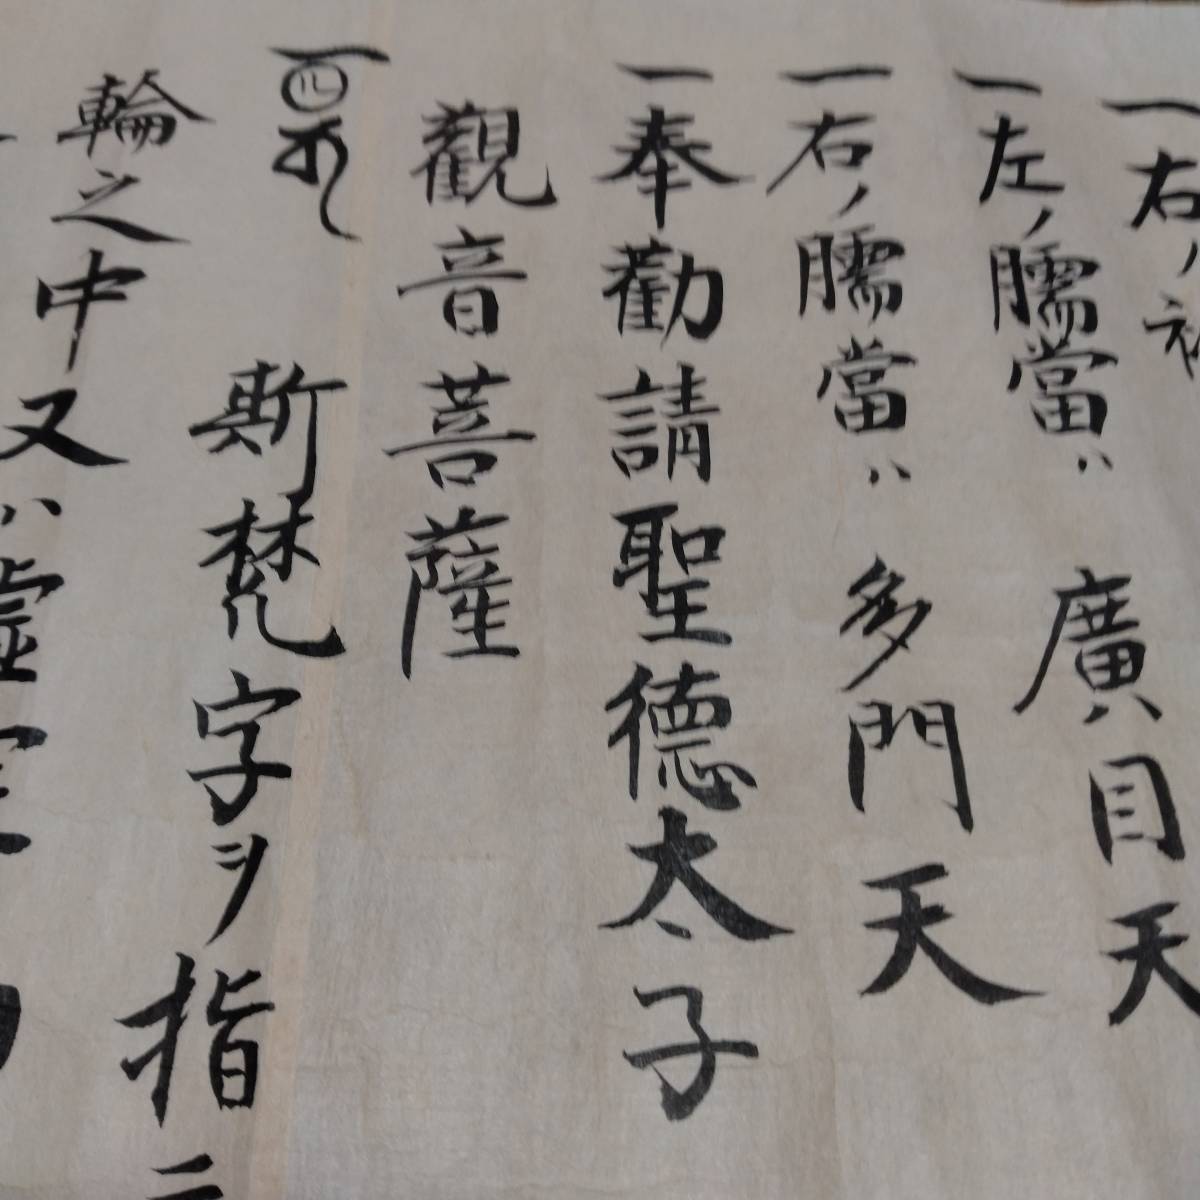 一右ノ
一左ノ臑當ハ 廣目天
一右ノ臑當ハ 多門天
一奉勸請聖德太子
觀音菩薩
一 斯梵字ヲ指ニ
輪之中又ハ虚空